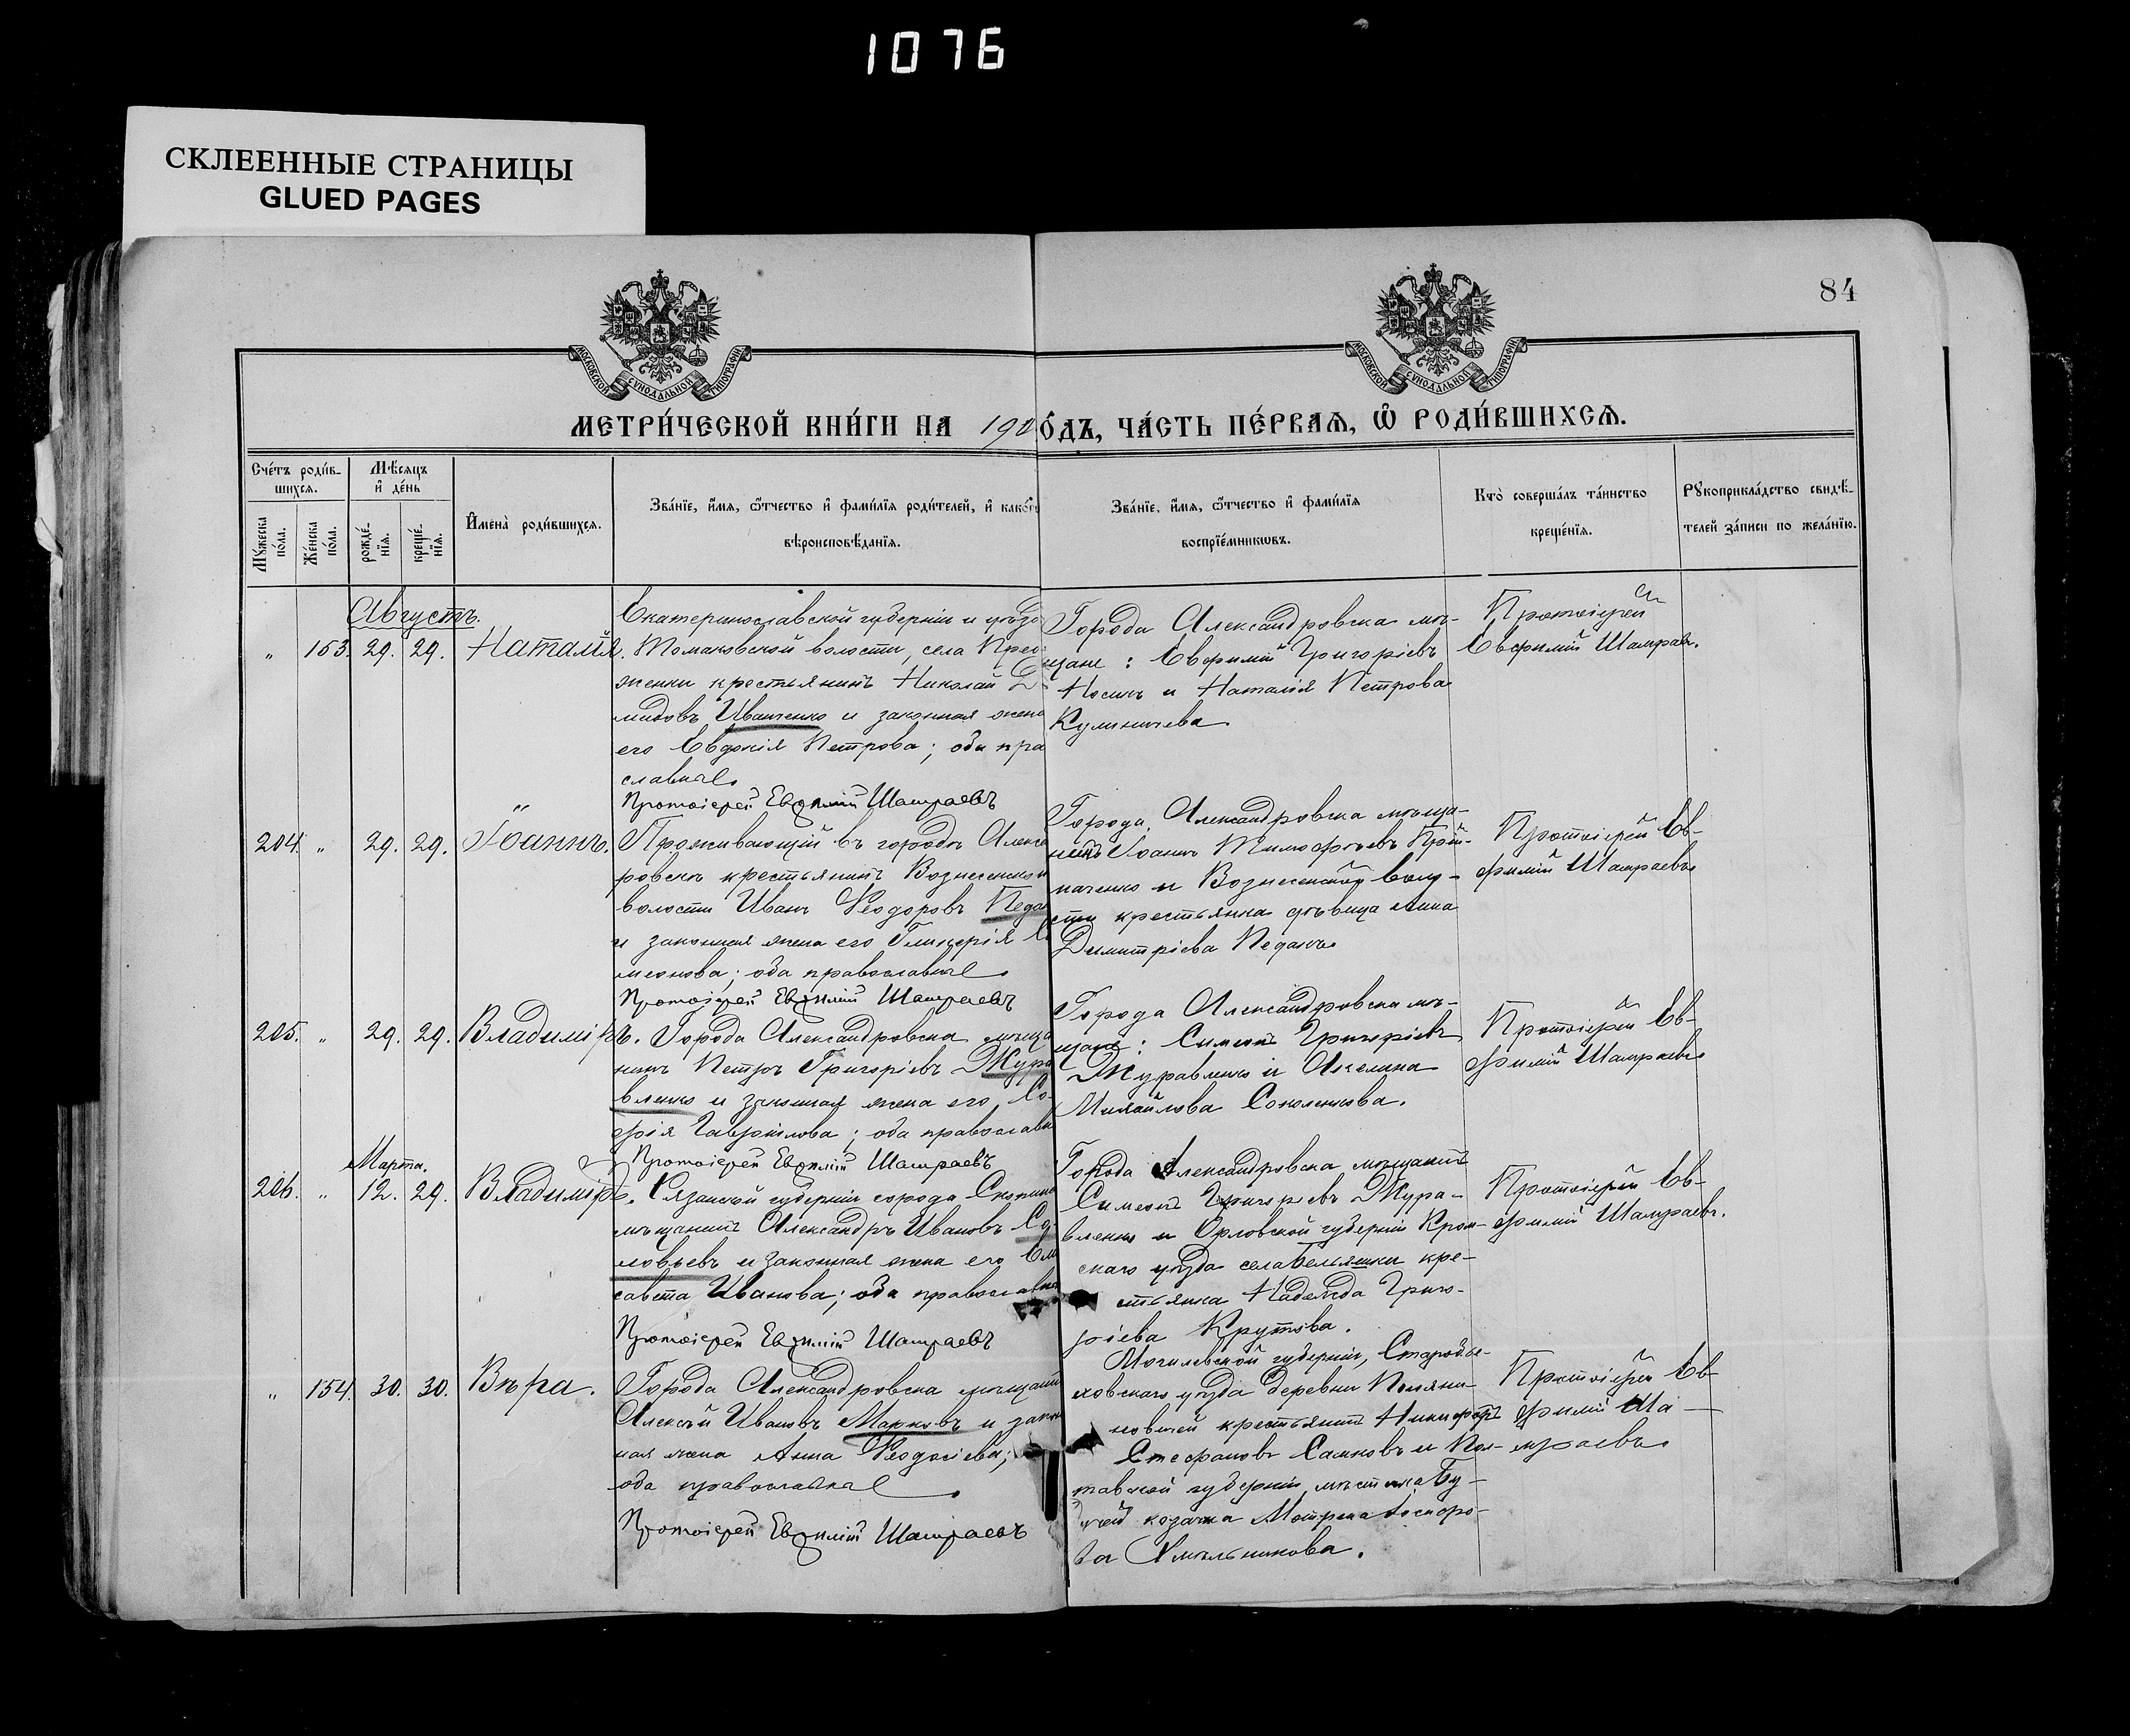 1076
СКЛЕЕННЫЕ СТРАНИЦЫ
GLUED PAGES
84
МОСКОВСКОЙ СѴНОДАЛЬНОЙ ТИПОГРАФІИ
МОСКОВСКОЙ СѴНОДАЛЬНОЙ ТИПОГРАФІИ
МЕТРИ́ЧЕСКОЙ КНИ́ГИ НА 190
О́ДЪ, ЧА́СТЬ ПЕ́РВАѦ, Ѡ҆ РОДИ́ВШИХСѦ.
Сче́тъ роди́в-
шихсѧ.
Мѣ́сѧцъ
и҆ де́нь
Мꙋ́жеска
по́ла.
Же́нска
по́ла.
рожде́-
нїѧ.
креще́-
нїѧ.
И҆мена̀ роди́вшихсѧ.
Зва́нїе, и҆́мѧ, ѻ҆́тчество и҆ фами́лїѧ роди́телей, и҆ како́гѡ
вѣроисповѣ́данїѧ.
Зва́нїе, и҆́мѧ, ѻ҆́тчество и҆ фами́лїѧ
воспрїе́мникѡвъ.
Кто̀ соверша́лъ та́инство
креще́нїѧ.
Рꙋкоприкла́дство свидѣ́-
телей за́писи по жела́нїю.
Августъ.
„ 153. 29. 29. Наталія.
Екатеринославской губерніи и уѣзда
Томаковской волости, села Прео
женки крестьянинъ Николай Д
мидовъ Иванченко и законная жена
его Евдокія Петрова; оба пра
славные
Протоіерей Евѳимій Шамраевъ
Города Александровска мѣ-
щане: Евфимій Григоріевъ
Носикъ и Наталія Петрова
Кулиничева
Протоіерей
Евфимій Шамраевъ.
204. „ 29. 29. Іоаннъ.
Проживающій въ городѣ Алекса
ровскѣ крестьянинъ Вознесенской
волости Иванъ Ѳеодоровъ Педа
и законная жена его Гликерія С
меонова; оба православные
Протоіерей Евѳимій Шамраевъ
Города Александровска мѣща-
нинъ Іоаннъ Тимофѣевъ Прій-
маченко и Вознесенской воло-
сти крестьянка дѣвица Анна
Димитріева Педанъ
Протоіерей Ев-
фимій Шамраевъ
205. „ 29. 29. Владиміръ.
Города Александровска мѣща
нинъ Петръ Григоріевъ Жура
вленко и законная жена его Со-
фія Гавріилова; оба православн
Протоіерей Евѳимій Шамраевъ
Города Александровска мѣ-
щане: Симеонъ Григоріевъ
Журавленко и Акелина
Михайлова Соколенкова.
Протоіерей Ев-
фимій Шамраевъ
Марта.
206. „ 12. 29. Владиміръ.
Рязанской губерніи города Скопина
мѣщанинъ Александръ Ивановъ Со-
ловьевъ и законная жена его Ели
савета Иванова; оба православна
Протоіерей Евѳимій Шамраевъ
Города Александровска мѣщанинъ
Симеонъ Григоріевъ Жура-
вленко и Орловской губерніи Кром-
скаго уѣзда села кре-
стьянка Надежда Григо-
ріева Крутова.
Протоіерей Ев-
фимій Шамраевъ.
„ 154. 30. 30. Вѣра.
Города Александровска мѣщанин
Алексѣй Ивановъ Марковъ и закон
ная жена Анна Ѳеодосіева;
оба православные
Протоіерей Евѳимій Шамраевъ
Могилевской губерніи, Старобы-
ховскаго уѣзда деревни
крестьянинъ Никифоръ
Стефановъ Самковъ и Пол-
тавской губерніи мѣстечка
козачка Матрена
ва Хмѣльникова.
Протоіерей Ев-
фимій Ша-
мраевъ